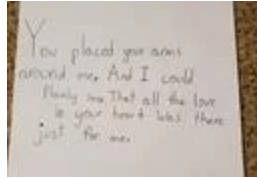 You placed your arms
around me. And I could
Plainly see That all the love
in your heart was there
just for me.